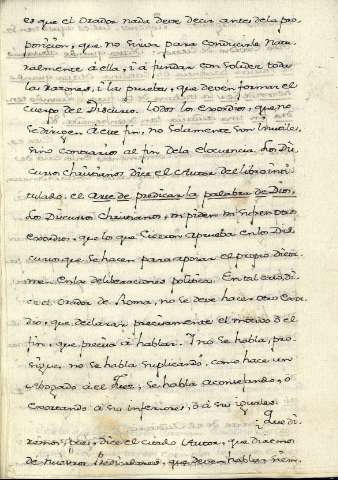 es que el Orador nada deve decir antes de la pro-
posicion, que no sirva para conducirle natu-
ralmente à ella, i à fundar con solidez todas
las razones, i las pruebas, que deven formar el
cuerpo del Discurso. Todos los exordios, que no
se dirigen à este fin, no solamente son inutiles,
sino contrarios al fin de la elocuencia. Los Dis-
cursos christianos dice el Autor del libro inti-
tulado el Arte de predicar la palabra de Dios,
Los Discursos Christianos, ni piden ni sufren otro
exordio, que lo que Ciceron aprueba en los Dis-
cursos que se hacen para apoiar el propio dicta-
men en las deliberaciones politicas. En tal caso, di-
ce el Orador de Roma, no se deve hacer otro Exor-
dio, que declarar precisamente el motivo ò el
fin, que precisa à hablar. I no se habla, pro-
sigue, no se habla suplicando, como hace un
Abogado à el Juez, se habla aconsejando, ò
exortando à sus inferiores, ò à sus iguales.
¿Que di-
remos pues, dice el citado Autor, que diremos
de nuestros Predicadores, que deven hablar siem-